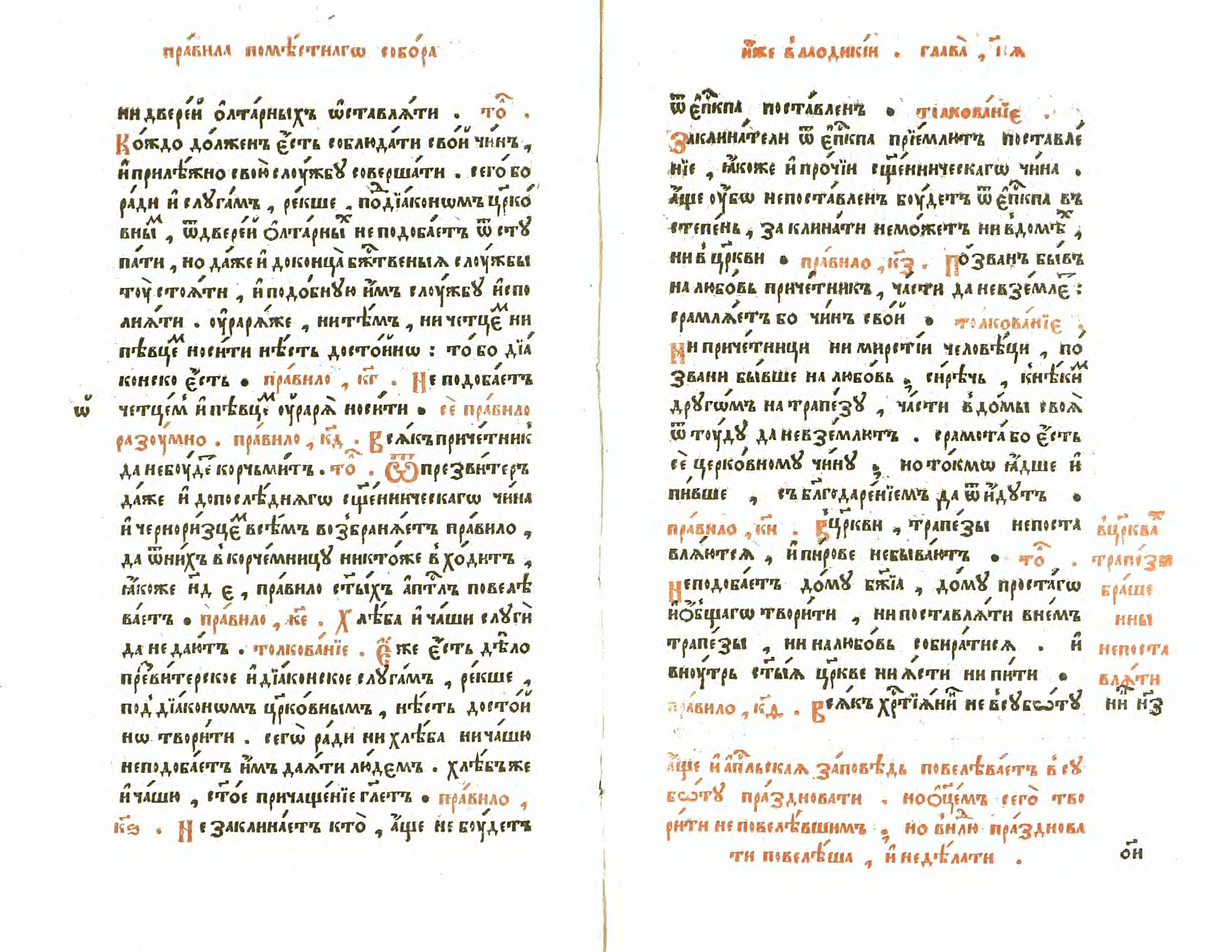 пра́вила помѣ́стнагѡ собо́ра
ни двере́й ѻ҆лта́рныхъ ѡ҆ставлѧ́ти . то̑ .
Ко́ждо до́лженъ є҆́сть соблюда́ти сво́й чи́нъ ,
и҆ прилѣ́жно свою̀ слоу́жбꙋ соверша́ти . сего́ бо
ра́ди и҆ слꙋга́мъ , ре́кше , поⷣдїа́кономъ цр҃ко́
вныⷨ , ѿ двере́й ѻ҆лта́рныⷯ не подоба́етъ ѿстꙋ
па́ти , но да́же и҆ до конца̀ бж҃твеныѧ слоу́жбы
тоу̀ стоѧ́ти , и҆ подо́бнꙋю и҆̀мъ слоу́жбꙋ и҆спо
лнѧ́ти . оу҆рарѧ́же , ни тѣ́мъ , ни четце́ⷨ ни
пѣвце́ⷨ носи́ти нѣ́сть досто́йнѡ : то́ бо дїа́
конско є҆́сть • пра́вило , к҃г . Не подоба́етъ
ѡ҆̀
четце́мⷨ и҆ пѣвце́ⷨ оу҆рарѧ̀ носи́ти • сѐ пра́вило
разоу́мно . пра́вило , к҃д . Всѧ́къ приче́тник
да не боу́деⷮ корчьми́тъ . то̑ . Ѿ презви́теръ
да́же и҆ до послѣ́днѧгѡ сщ҃е́нническагѡ чи́на
и҆ чернори́зцеⷨ всѣ́мъ возбранѧ́етъ пра́вило ,
да ѿ ни́хъ в корче́мницꙋ никто́же в хо́дитъ ,
ꙗ҆́коже н҃д є҆ , пра́вило ст҃ы́хъ а҆пⷭ҇тлъ повелѣ
ва́етъ • пра́вило , к҃е . Хлѣ́ба и҆ ча́ши слꙋги̑
да не даю́тъ . толкова́нїе . Є҆́же є҆́сть дѣ́ло
пре́ⷥви́терское и҆ дїа́конское слꙋга́мъ , ре́кше ,
под̾дїа́конѡмъ цр҃ко́внымъ , нѣ́сть досто́й
нѡ твори́ти . сегѡ̀ ра́ди ни хлѣ́ба ни ча́шю
не подоба́етъ и҆̀мъ даѧ́ти лю́демъ . хлѣ́бъ же
и҆ ча́шю , ст҃о́е причаще́нїе гл҃етъ • пра́вило ,
к҃ѕ . Не заклина́етъ кто̀ , а҆́ще не боу́детъ
и҆̀же в лаодики́и . глава̀ ,
ѿ є҆пⷭ҇кпа поста́вленъ • толкова́нїе .
Заклина́тели ѿ є҆пⷭ҇кпа прїе́млютъ поставле́
нїе , ꙗ҆́коже и҆ про́чїи сщ҃е́нническагѡ чи́на .
а҆́ще оу҆́бѡ не поста́вленъ боу́детъ ѿ є҆пⷭ҇кпа въ
сте́пень , заклина́ти не мо́жетъ ни в домѣ́ⷯ ,
ни в цр҃кви • пра́вило , к҃з . По́званъ бы́въ
на любо́вь приче́тникъ , ча́сти да не взе́млеⷮ :
срамлѧ́етъ бо чи́нъ сво́й • толкова́нїе :
Ни приче́тници ни мирсті́и человѣ́цы , по́
звани бы́вше на любо́вь , си́рѣчь , к нѣ́киⷨ
дрꙋгѡ́мъ на трапе́зꙋ , ча́сти в до́мы своѧ̀
ѿтоу́дꙋ да не взе́млютъ . срамота́ бо є҆́сть
сѐ церко́вномꙋ чи́нꙋ , но то́кмѡ ꙗ҆́дше и҆
пи́вше , съ бл҃годаре́нїемъ да ѿи́дꙋтъ •
пра́вило , к҃и . В цр҃кви , трапе́зы не поста
влѧ́ютсѧ , и҆ пи́рове не быва́ютъ • то̑ .
Не подоба́етъ до́мꙋ бж҃їа , до́мꙋ проста́гѡ
и҆ ѻ҆́бщагѡ твори́ти , ни поставлѧ́ти в не́мъ
трапе́зы , ни на любо́вь собира́тисѧ . и҆
внꙋ́трь ст҃ы́ѧ цр҃кве ни ꙗ҆́сти ни пи́ти •
пра́вило , к҃д . Всѧ́къ хрⷭ҇тїѧ́ниⷩ не в сꙋббѡ́тꙋ
в цр҃кваⷯ
трапе́зы
бра́ше
нны
непоста
влѧ́ти
ни и҆з
а҆́ще и҆ а҆пⷭ҇льскаѧ за́повѣдь повелѣва́етъ в сꙋ
бѡ́тꙋ пра́здновати . но ѻ҆ц҃е́мъ сего̀ тво
ри́ти не повелѣ́вшимъ , но в нⷣлю пра́зднова
ти повелѣ́ша , и҆ не дѣ́лати .
ѻ҆́н